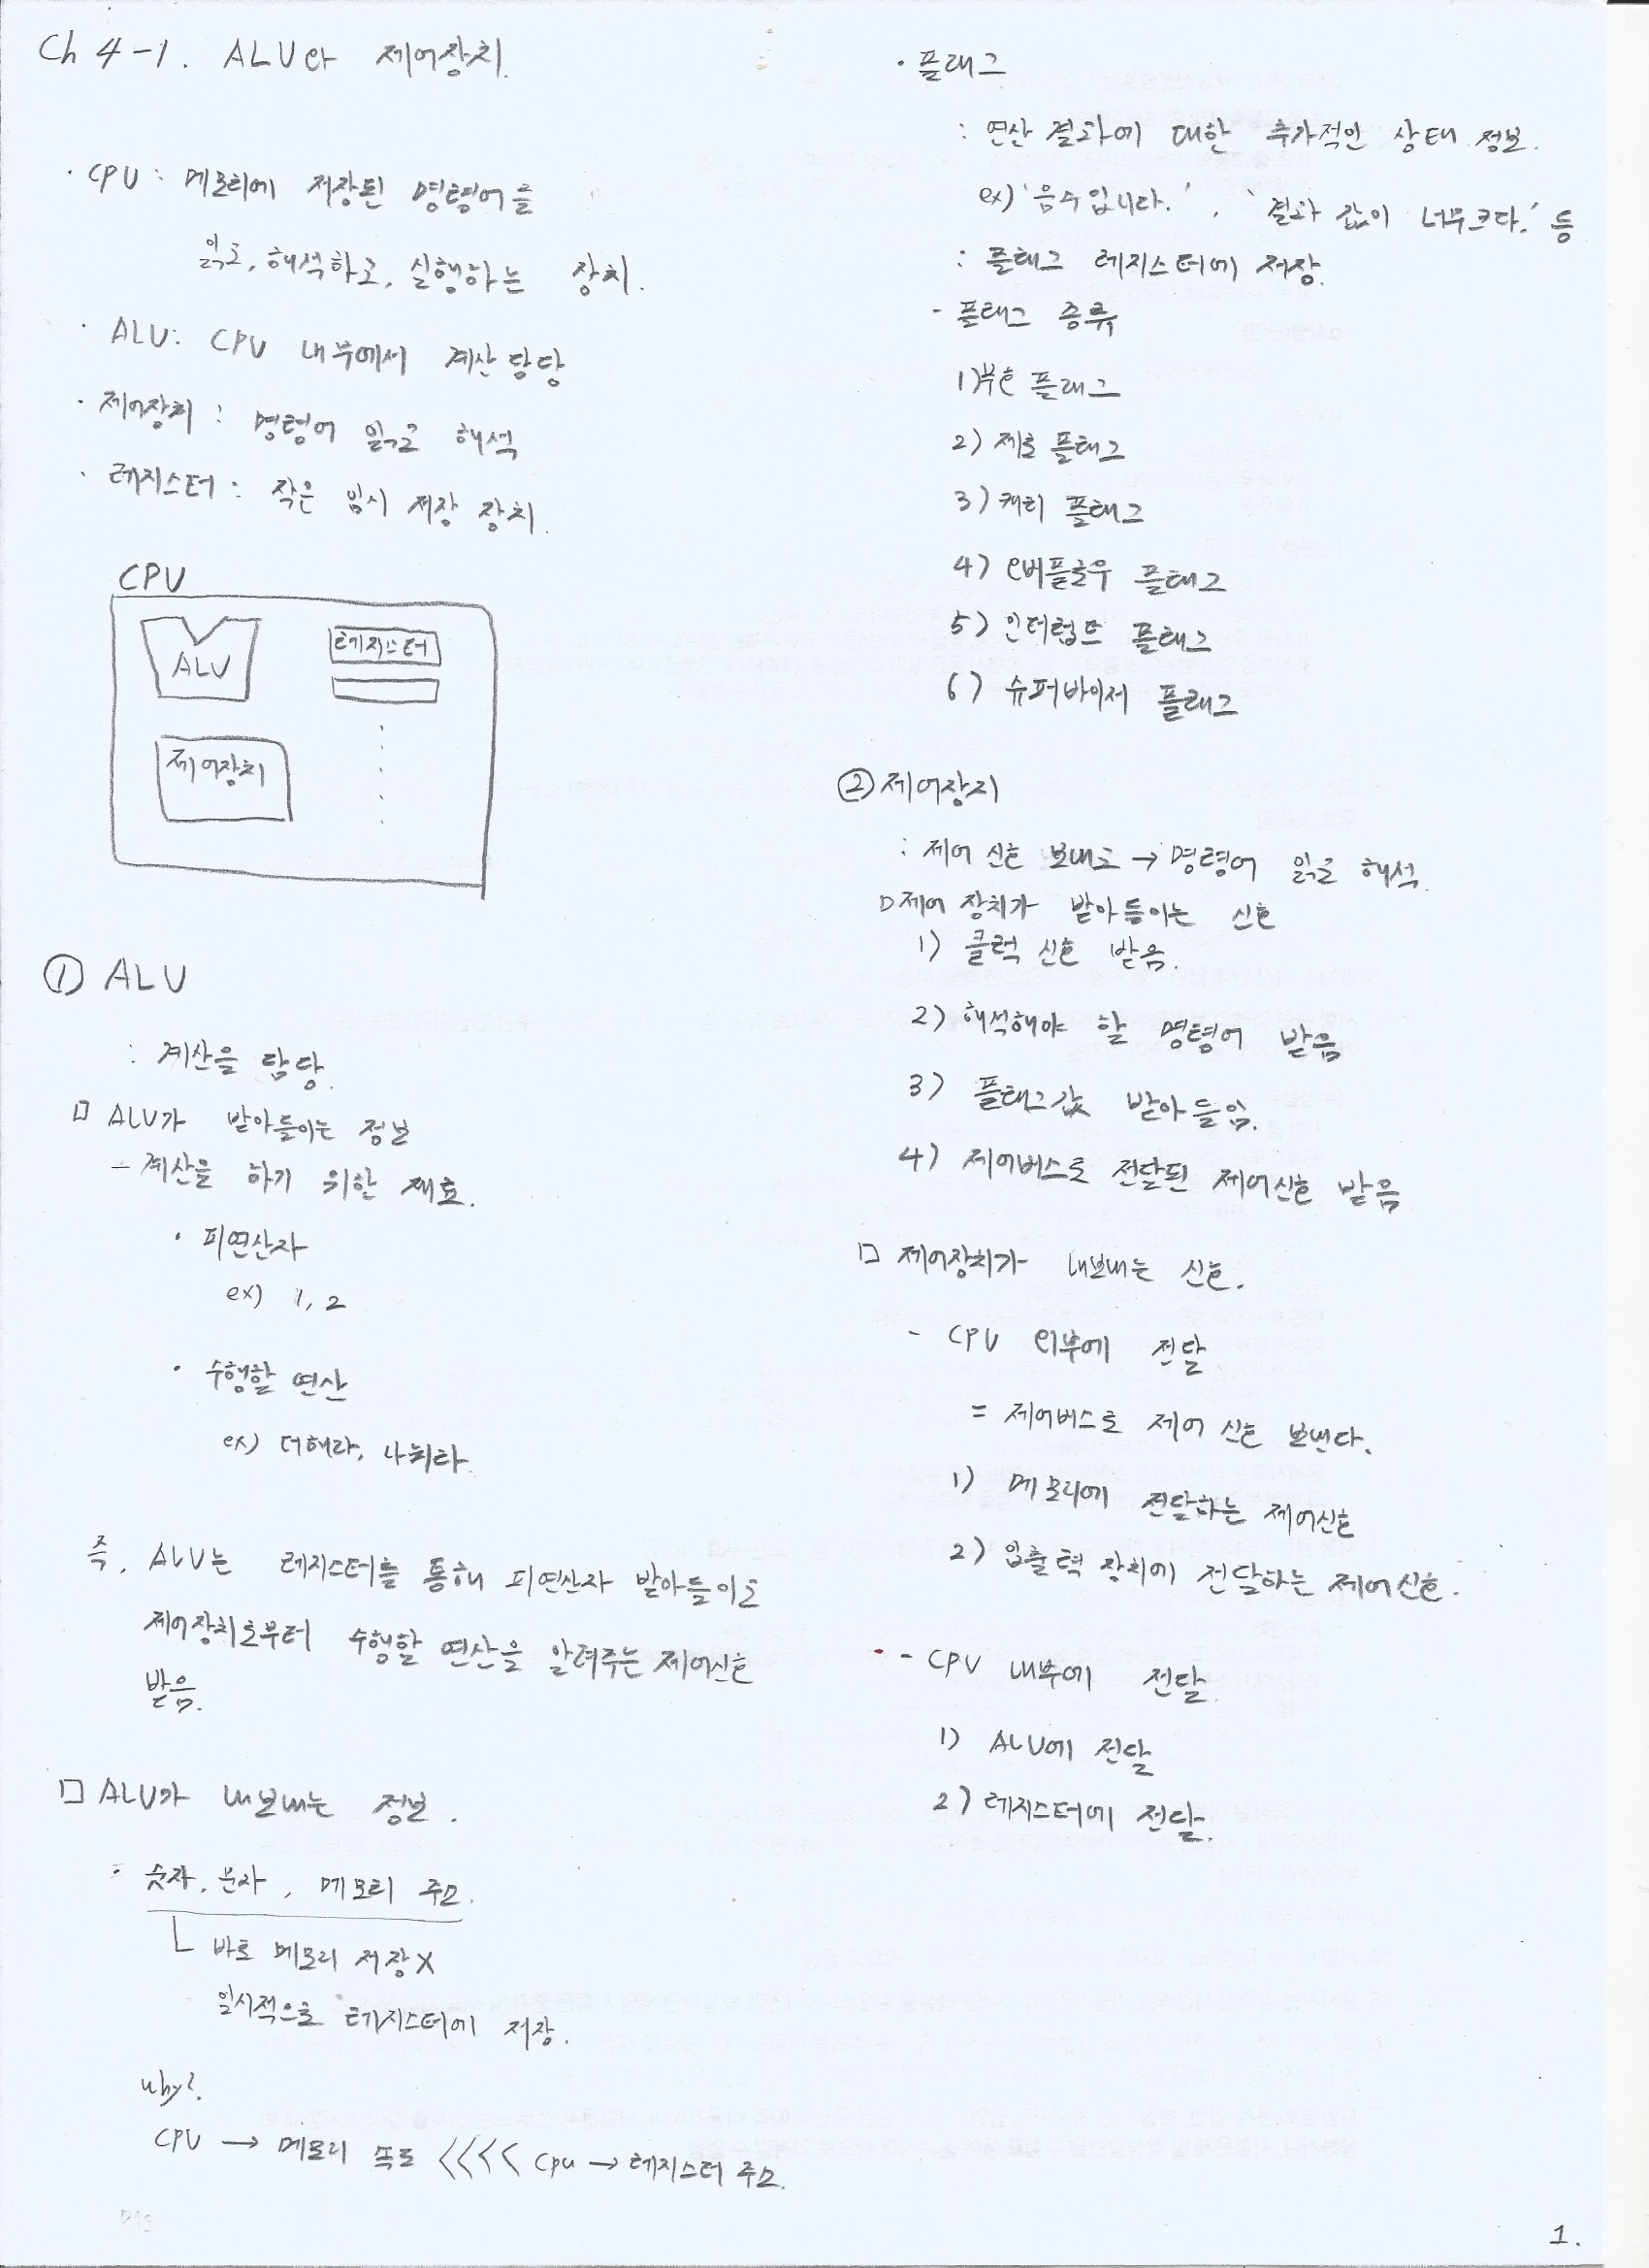 Ch 4-1. ALU와 제어장치.
· CPU : 메모리에 저장된 명령어를
읽고, 해석하고, 실행하는 장치.
· ALU: CPU 내부에서 계산 담당
· 제어장치 : 명령어 읽고 해석
· 레지스터 : 작은 임시 저장 장치.
CPU
ALU
레지스터
제어장치
① ALU
: 계산을 담당.
□ ALU가 받아들이는 정보
- 계산을 하기 위한 재료.
· 피연산자
ex) 1, 2
· 수행할 연산
ex) 더해라, 나눠라.
즉, ALU는 레지스터를 통해 피연산자 받아들이고
제어장치로부터 수행할 연산을 알려주는 제어신호
받음.
□ ALU가 내보내는 정보.
: 숫자, 문자, 메모리 주소.
└ 바로 메모리 저장 X
일시적으로 레지스터에 저장.
why?.
CPU → 메모리 속도 <<<< CPU → 레지스터 주소.
· 플래그
: 연산 결과에 대한 추가적인 상태 정보.
ex) '음수입니다.', '결과 값이 너무크다.' 등
: 플래그 레지스터에 저장.
- 플래그 종류
1) 부호 플래그
2) 제로 플래그
3) 캐리 플래그
4) 오버플로우 플래그
5) 인터럽트 플래그
6) 슈퍼바이저 플래그
② 제어장치
: 제어 신호 보내고 → 명령어 읽고 해석.
□ 제어 장치가 받아들이는 신호
1) 클럭 신호 받음.
2) 해석해야 할 명령어 받음
3) 플래그값 받아들임.
4) 제어버스로 전달된 제어신호 받음
□ 제어장치가 내보내는 신호.
- CPU 외부에 전달
= 제어버스로 제어 신호 보낸다.
1) 메모리에 전달하는 제어신호
2) 입출력 장치에 전달하는 제어신호.
- CPU 내부에 전달.
1) ALU에 전달
2) 레지스터에 전달.
1.